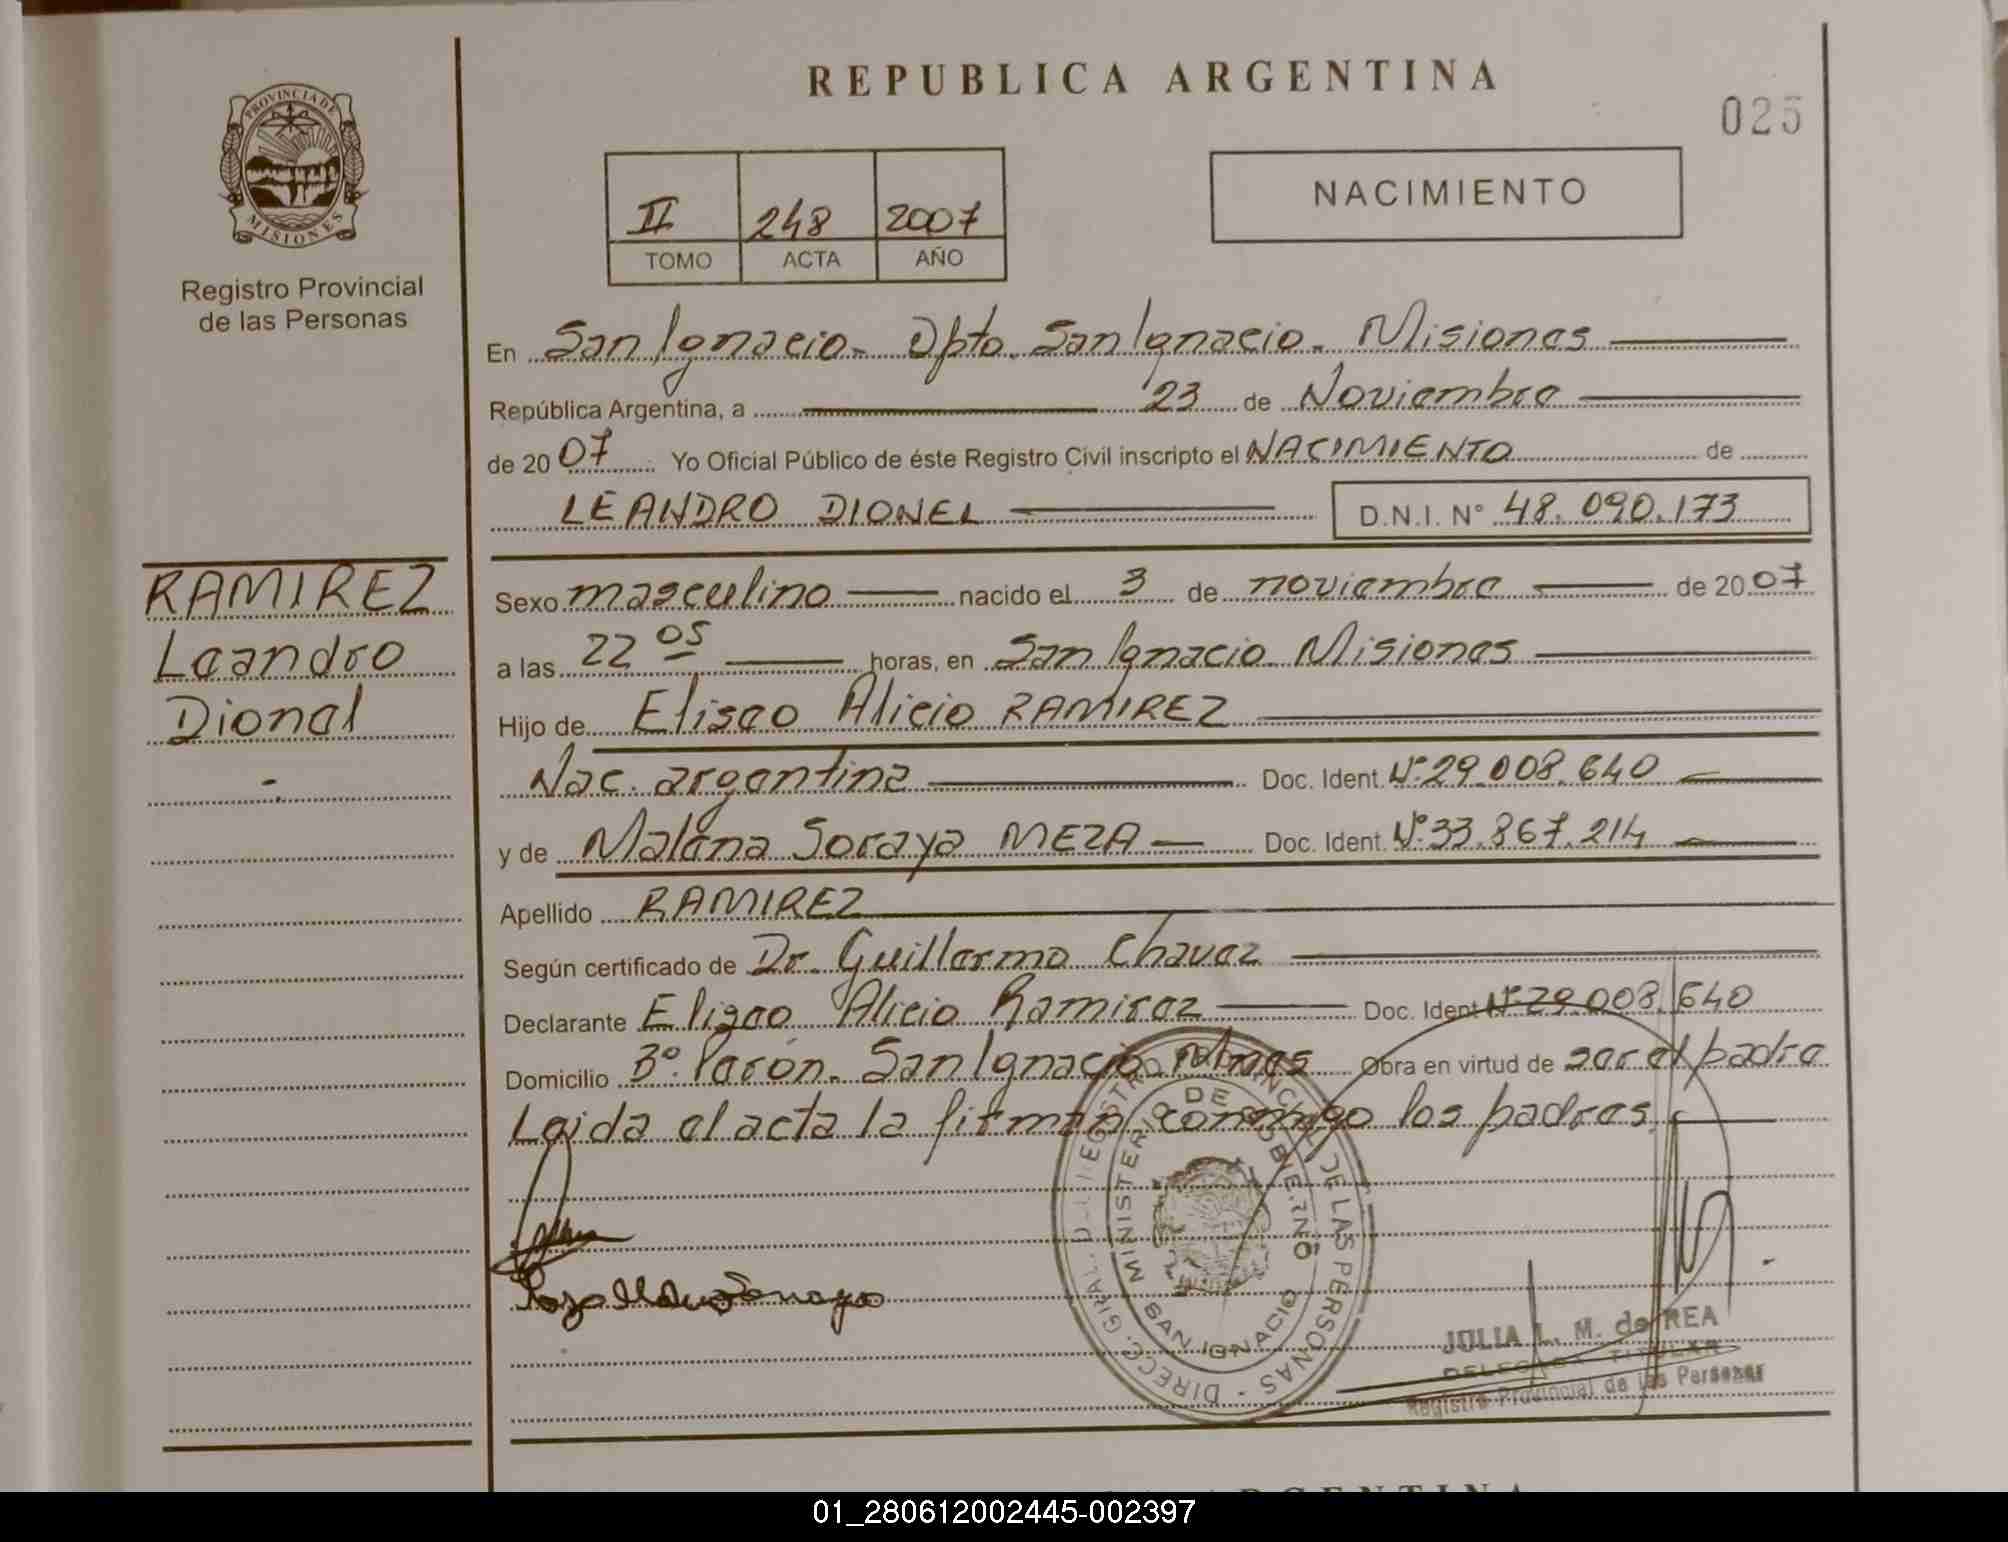 REPUBLICA ARGENTINA
025
PROVINCIA DE
MISIONES
Registro Provincial
de las Personas
II 248 2007
TOMO ACTA AÑO
NACIMIENTO
En San Ignacio. Dpto. San Ignacio. Misiones
República Argentina, a 23 de Noviembre
de 2007 Yo Oficial Público de éste Registro Civil inscripto el NACIMIENTO de
LEANDRO DIONEL D.N.I. N° 48.090.173
RAMIREZ
Leandro
Dionel
Sexo masculino nacido el 3 de noviembre de 2007
a las 22 05 horas, en San Ignacio Misiones
Hijo de Eliseo Alicio RAMIREZ
Nac. argentina Doc. Ident. N° 29.008.640
y de Malena Soraya MEZA Doc. Ident. N° 33.867.214
Apellido RAMIREZ
Según certificado de Dr. Guillermo Chavez
Declarante Eliseo Alicio Ramirez Doc. Ident N° 29.008.640
Domicilio B° Perón. San Ignacio Mnes Obra en virtud de ser el padre
Leida el acta la firman conmigo los padres.
REGISTRO PROVINCIAL DE LAS PERSONAS - DIRECC. GRAL.
MINISTERIO DE GOBIERNO
SAN IGNACIO
JULIA L. M. de REA
DELEGADA TITULAR
Registro Provincial de las Personas
ARGENTINA
01_280612002445-002397